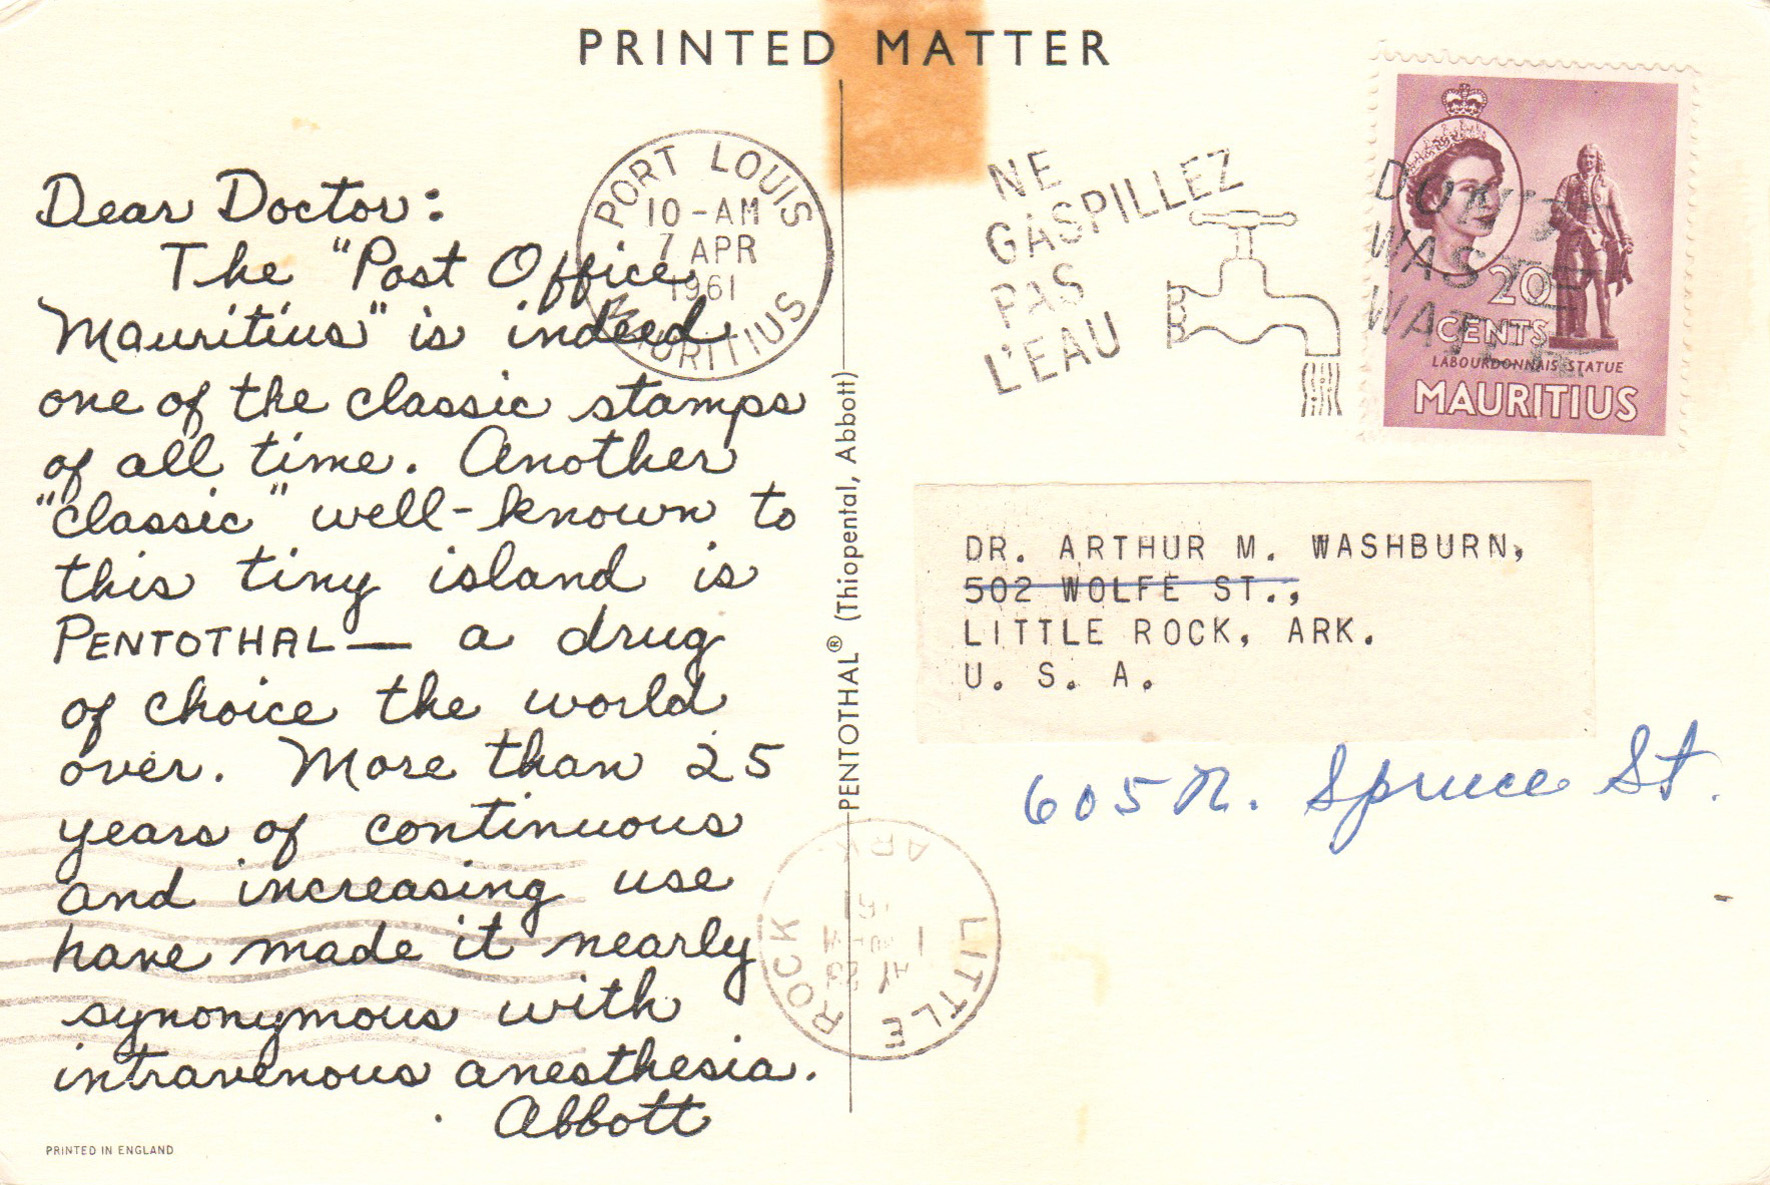 PRINTED MATTER
Dear Doctor:
The "Post Office
Mauritius" is indeed
one of the classic stamps
of all time. Another
"classic" well-known to
this tiny island is
PENTOTHAL — a drug
of choice the world
over. More than 25
years of continuous
and increasing use
have made it nearly
synonymous with
intravenous anesthesia.
Abbott
PRINTED IN ENGLAND
PORT LOUIS
10-AM
7 APR
1961
MAURITIUS
PENTOTHAL® (Thiopental, Abbott)
NE
GASPILLEZ
PAS
L'EAU
DON'T
WASTE
WATER
20
CENTS
LABOURDONNAIS STATUE
MAURITIUS
DR. ARTHUR M. WASHBURN,
502 WOLFE ST.,
LITTLE ROCK, ARK.
U. S. A.
605 N. Spruce St.
LITTLE ROCK
ARK.